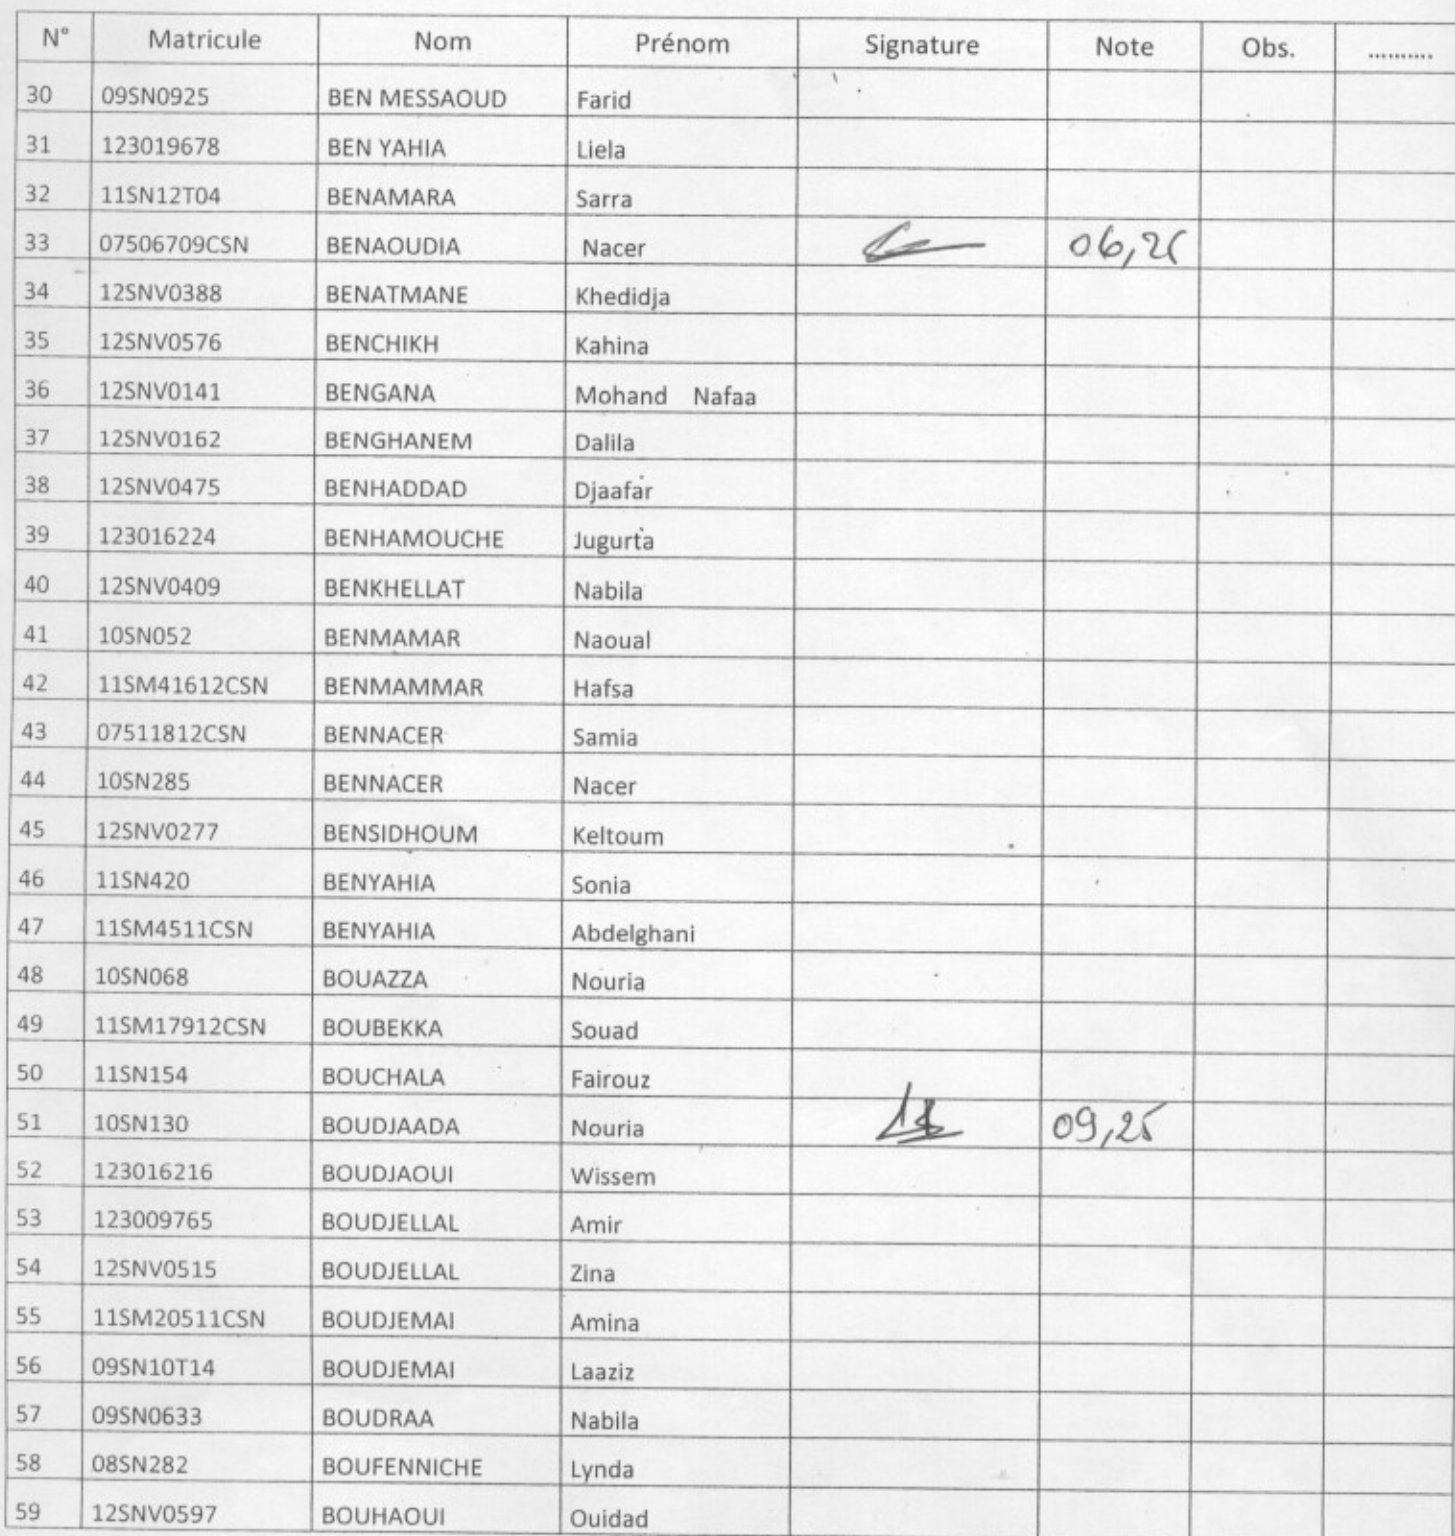 N° Matricule Nom Prénom Signature Note Obs. ..........
30 09SN0925 BEN MESSAOUD Farid
31 123019678 BEN YAHIA Liela
32 11SN12T04 BENAMARA Sarra
33 07506709CSN BENAOUDIA Nacer 06,25
34 12SNV0388 BENATMANE Khedidja
35 12SNV0576 BENCHIKH Kahina
36 12SNV0141 BENGANA Mohand Nafaa
37 12SNV0162 BENGHANEM Dalila
38 12SNV0475 BENHADDAD Djaafar
39 123016224 BENHAMOUCHE Jugurta
40 12SNV0409 BENKHELLAT Nabila
41 10SN052 BENMAMAR Naoual
42 11SM41612CSN BENMAMMAR Hafsa
43 07511812CSN BENNACER Samia
44 10SN285 BENNACER Nacer
45 12SNV0277 BENSIDHOUM Keltoum
46 11SN420 BENYAHIA Sonia
47 11SM4511CSN BENYAHIA Abdelghani
48 10SN068 BOUAZZA Nouria
49 11SM17912CSN BOUBEKKA Souad
50 11SN154 BOUCHALA Fairouz
51 10SN130 BOUDJAADA Nouria 09,25
52 123016216 BOUDJAOUI Wissem
53 123009765 BOUDJELLAL Amir
54 12SNV0515 BOUDJELLAL Zina
55 11SM20511CSN BOUDJEMAI Amina
56 09SN10T14 BOUDJEMAI Laaziz
57 09SN0633 BOUDRAA Nabila
58 08SN282 BOUFENNICHE Lynda
59 12SNV0597 BOUHAOUI Ouidad